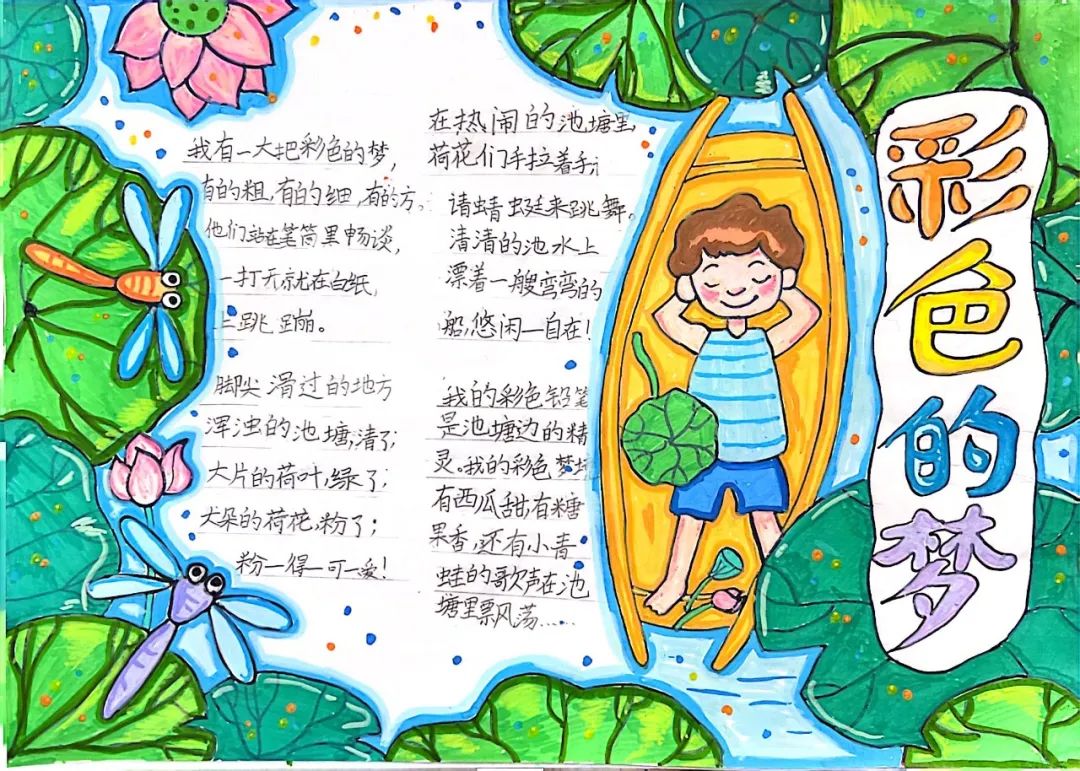 彩色的梦
我有一大把彩色的梦，
有的粗，有的细，有的方。
他们站在笔筒里畅谈，
一打开就在白纸
上跳蹦。
脚尖滑过的地方
浑浊的池塘，清了；
大片的荷叶，绿了；
大朵的荷花，粉了；
粉—得—可—爱！
在热闹的池塘里
荷花们手拉着手；
请蜻蜓来跳舞。
清清的池水上
漂着一艘弯弯的
船，悠闲—自在！
我的彩色铅笔
是池塘边的精
灵。我的彩色梦境
有西瓜甜，有糖
果香，还有小青
蛙的歌声在池
塘里飘荡……